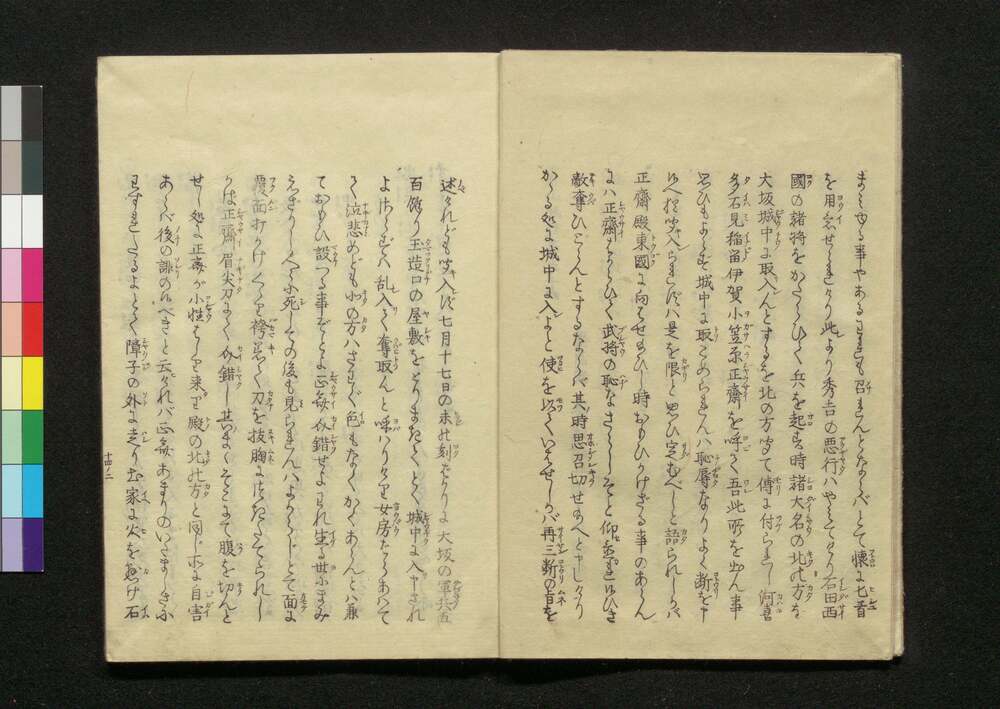 を用意せられけり此より秀吉の悪行ハやミてけり石田西
國の諸将をかたらひて兵を起す時諸大名の北の方を
大坂城中に取入んとするを北の方聞て傅に付られし河喜
多石見稲留伊賀小笠原正齋を呼て吾此所を出ん事
思ひもよらず城中に取こめられんハ恥辱なりよく断を申
べし聞入られずバ是を限と思ひ定むべしと語られしかバ
正齋殿東國に向ハせ給ひし時おもひかけざる事のあらん
にハ正齋よくはからひて武将の恥なきやうにせよと仰置れ
敵奪ひとらんとするならバ其時思召切せ給へと申しけり
かゝる処に城中に入よと使を以ていハせしかバ再三断の旨を
述られども聞入ず七月十七日の未の刻ばかりに大坂の軍兵五
百餘り玉造口の屋敷をとりまきてとく城中に入申されよ
さらずハ乱入て奪取んと呼ハりけるを女房たちあハて
て泣悲めども北の方ハさわぐ色もなくかくあらんとハ兼
ておもひ設つる事ぞとよ正齋介錯せよわれ生る世にまみ
えざりし人に死しての後も見られんハよからじとて面に
覆面打かけくゝり袴着て刀を抜胸につきたてられし
かば正齋眉尖刀にて介錯し其まゝそこにて腹を切んと
せし処に正齋が小性はしり来り殿の北の方と同じ所に自害
あらバ後の誹のバべきと云ければ正齋あまりのいそがしさに
わすれたるよとて障子の外に走り出家に火をかけ石
十四ノ二